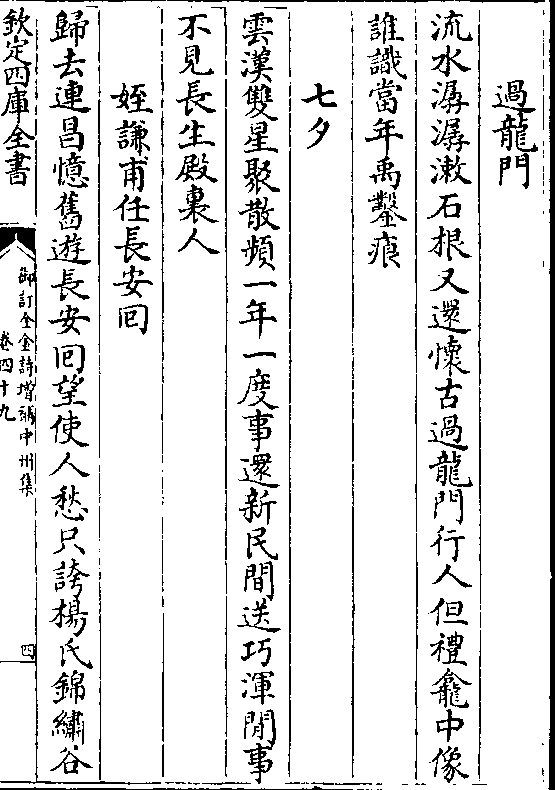 過龍門
流水潺潺漱石根又還懷古過龍門行人但禮龕中像
誰識當年禹鑿痕
七夕
雲漢雙星聚散頻一年一度事還新民間送巧渾閒事
不見長生殿裏人
姪謙甫任長安回
歸去連昌憶舊遊長安回望使人愁只誇楊氏錦繡谷
欽定四庫全書
御訂全金詩增補中州集
卷四十九
四